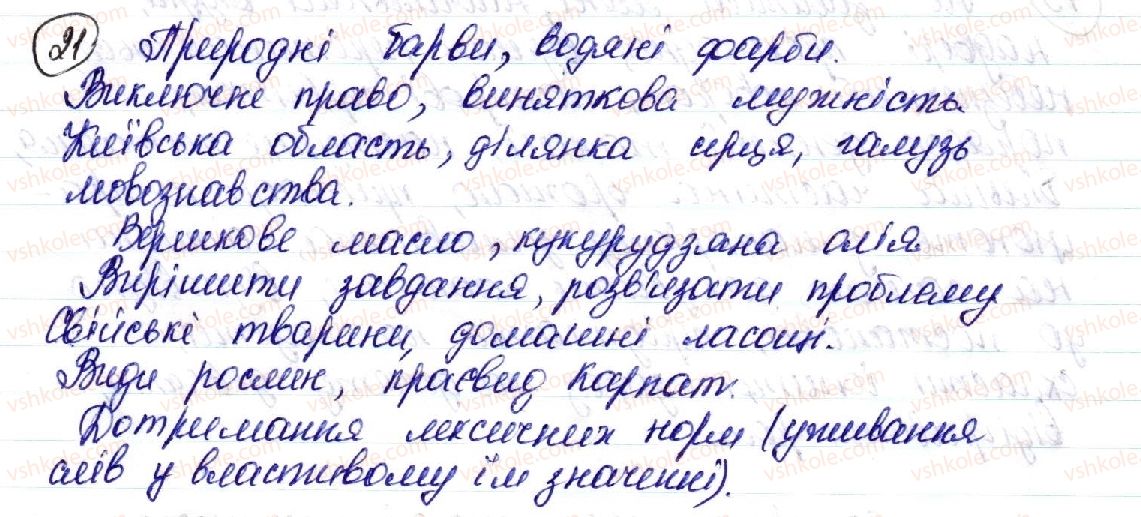 21 Природні барви, водяні фарби.
Виключне право, виняткова мужність.
Київська область, ділянка серця, галузь
мовознавства.
Вершкове масло, кукурудзяна олія
Вирішити завдання, розв'язати проблему
Свійські тварини, домашні ласощі.
Види рослин, краєвид Карпат.
Дотримання лексичних норм (уживання
слів у властивому їм значенні).